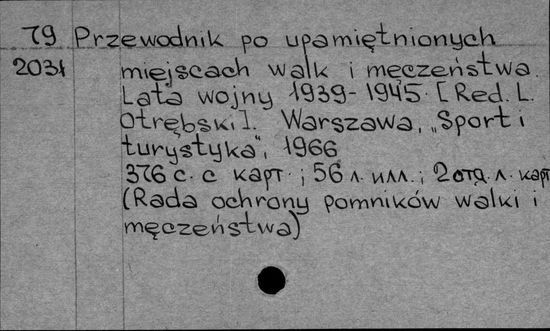 79 Przewodnik po upamiętnionych
203t miejscach walk i męczeństwa.
Lata wojny 1939-1945. [Red. L.
Otrębski]. Warszawa, „Sport i
turystyka", 1966
376 с. с карт.; 56 л. илл.; 2 отд. л. карт
(Rada ochrony pomników walki i
męczeństwa)